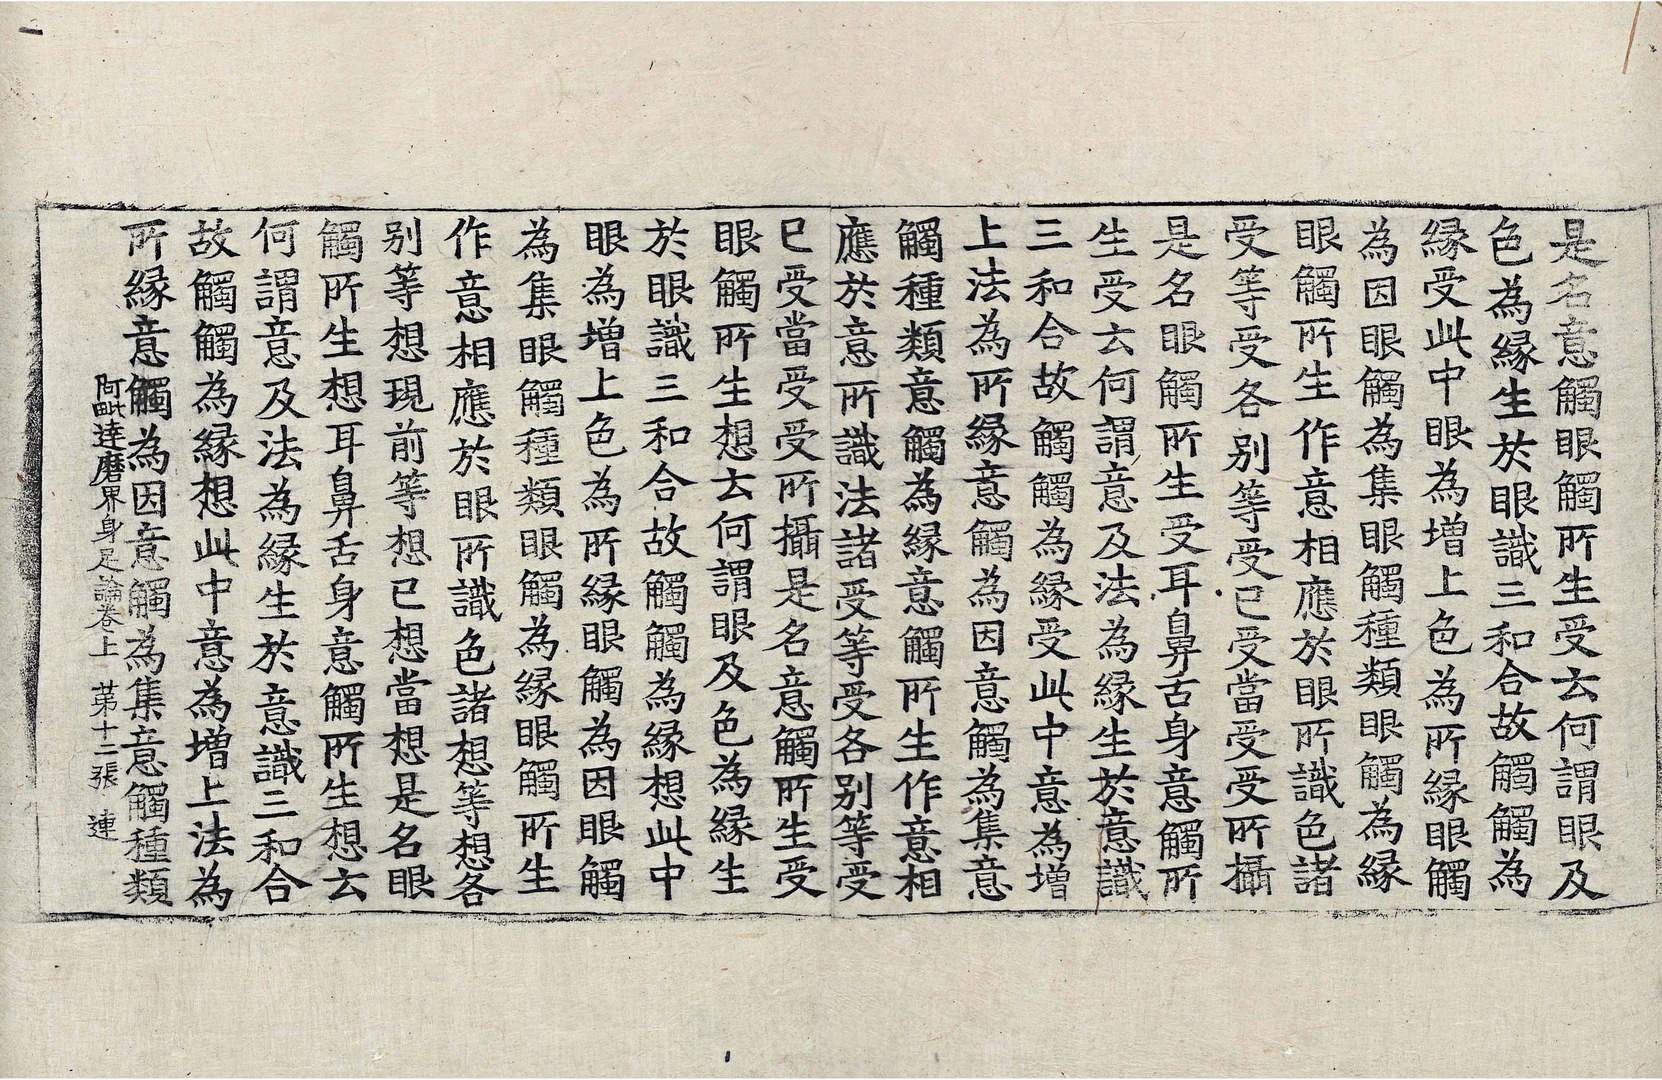 是名意觸眼觸所生受云何謂眼及
色為緣生於眼識三和合故觸觸為
緣受此中眼為增上色為所緣眼觸
為因眼觸為集眼觸種類眼觸為緣
眼觸所生作意相應於眼所識色諸
受等受各別等受已受當受受所攝
是名眼觸所生受耳鼻舌身意觸所
生受云何謂意及法為緣生於意識
三和合故觸觸為緣受此中意為增
上法為所緣意觸為因意觸為集意
觸種類意觸為緣意觸所生作意相
應於意所識法諸受等受各別等受
已受當受受所攝是名意觸所生受
眼觸所生想云何謂眼及色為緣生
於眼識三和合故觸觸為緣想此中
眼為增上色為所緣眼觸為因眼觸
為集眼觸種類眼觸為緣眼觸所生
作意相應於眼所識色諸想等想各
別等想現前等想已想當想是名眼
觸所生想耳鼻舌身意觸所生想云
何謂意及法為緣生於意識三和合
故觸觸為緣想此中意為增上法為
所緣意觸為因意觸為集意觸種類
阿毗達磨界身足論卷上 第十二張 連